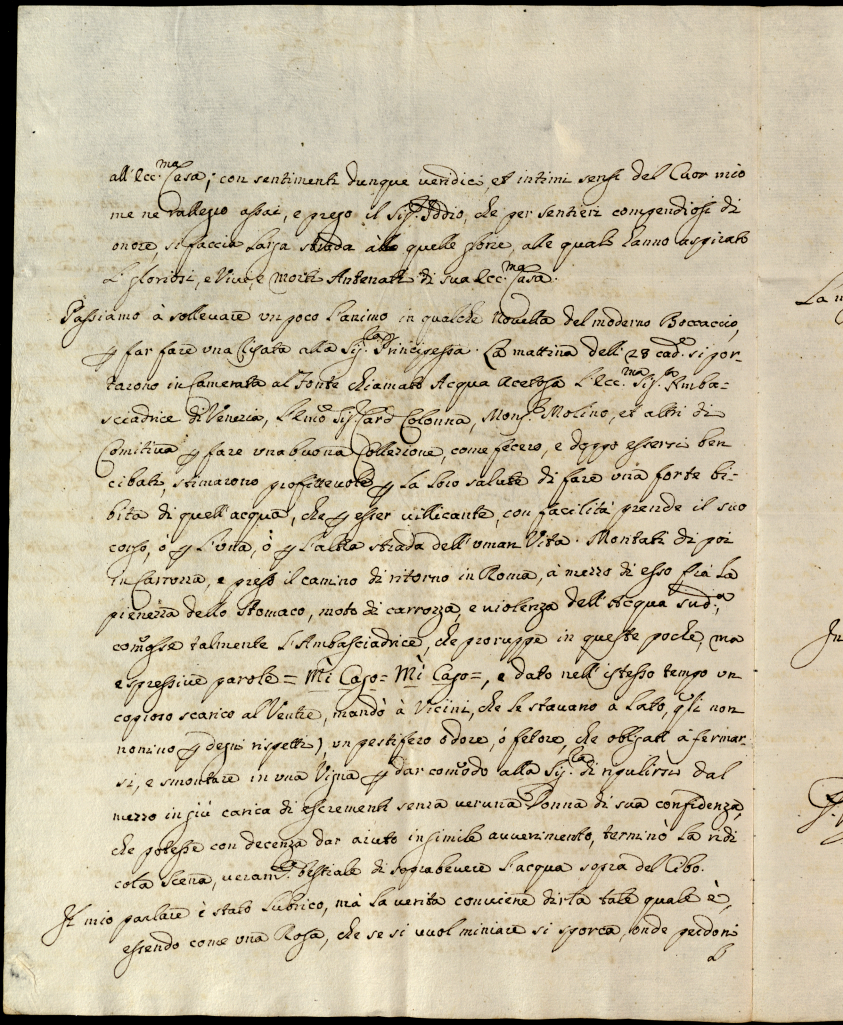 all'Ecc.ma Casa; con sentimenti dunque veridici, et intimi sensi del Cuor mio
me ne rallegro assai, e prego il Sig.r Iddio, che per sentieri compendiosi di
onore, si faccia larga strada alle quelle glorie, alle quali hanno aspirato
l'gloriosi, e Vivi, e morti Antenati di sua Ecc.ma Casa.
Passiamo à sollevare un poco l'animo in qualche novella del moderno Boccaccio,
p far fare una risata alla Sig.ra Principessa. La mattina dell'28 cad.e si por-
tarono in Camerata al Fonte chiamato Acqua Acetosa l'Ecc.ma Sig.ra Amba-
sciadrice di Venezia, l'Emo Sig.r Card Colonna, Mons.r Molino, et altri di
Comitiva p fare una buona Collezione, come fecero, e doppo essersi ben
cibati, stimarono profittevole p la loro salute di fare una forte bi-
bita di quell'acqua, che p esser utilicante, con facilità prende il suo
corso, ò p l'una, ò p l'altra strada dell'uman Vita. Montati di poi
in Carrozza, e preso il camino di ritorno in Roma, à mezzo di esso frà la
pienezza dello stomaco, moto di carrozza, e violenza dell'Acqua sud.a,
comosse talmente l'Ambasciadrice, che proruppe in queste poche, ma
espressive parole = Mi Cago = Mì Cago =, e dato nell'istesso tempo un
copioso scarico al Ventre, mandò à Vicini, che le stavano à lato, q̃li non
nomino p degni rispetti, un pestifero odore, ò fetore, che obligati à fermar-
si, e smontare in una Vigna p dar comodo alla Sig.ra di ripulirsi dal
mezzo in giù carica di escrementi senza veruna Donna di sua confidenza,
che potesse con decenza dar aiuto in simile avvenimento, terminò la ridi
cola scena, veram.e bestiale di soprabevere l'acqua sopra del Cibo.
Il mio parlare è stato lubrico, mà la verità conviene dirla tale quale è,
essendo come una Rosa, che se si vuol miniare si sporca, onde perdoni